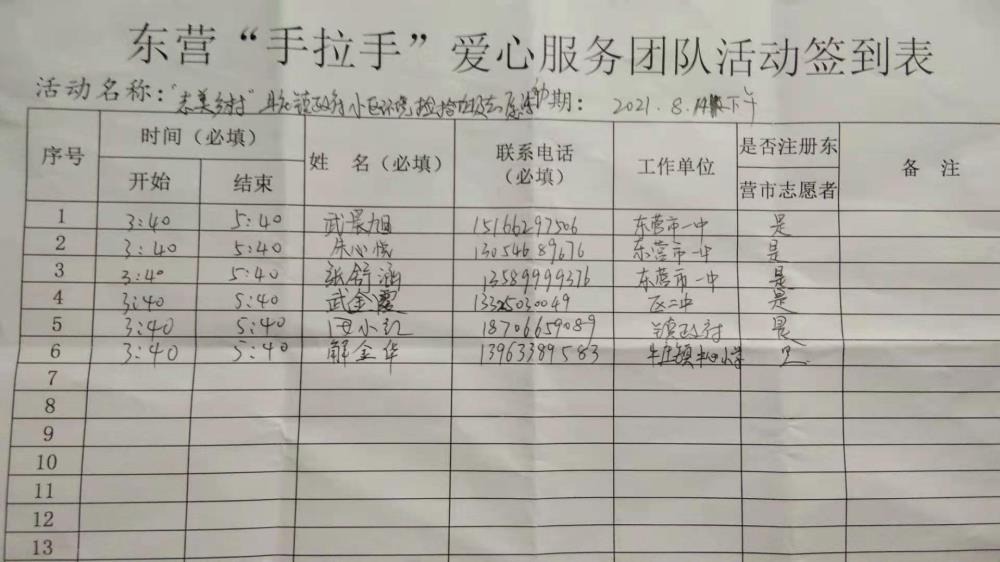 东营“手拉手”爱心服务团队活动签到表
活动名称：“志美乡村” 镇政府小区环境 日期： 2021.8.14 下午
序号 时间（必填） 姓 名（必填） 联系电话（必填） 工作单位 是否注册东营市志愿者 备 注
开始 结束
1 3:40 5:40 武晨旭 15166297506 东营市一中 是
2 3:40 5:40 朱心悦 13054689676 东营市一中 是
3 3:40 5:40 纸舒涵 13589999376 东营市一中 是
4 3:40 5:40 武金霞 13325030049 区二中 是
5 3:40 5:40 田小红 18706659089 镇政府 是
6 3:40 5:40 解金华 13963389583 牛庄镇中心小学 是
7
8
9
10
11
12
13